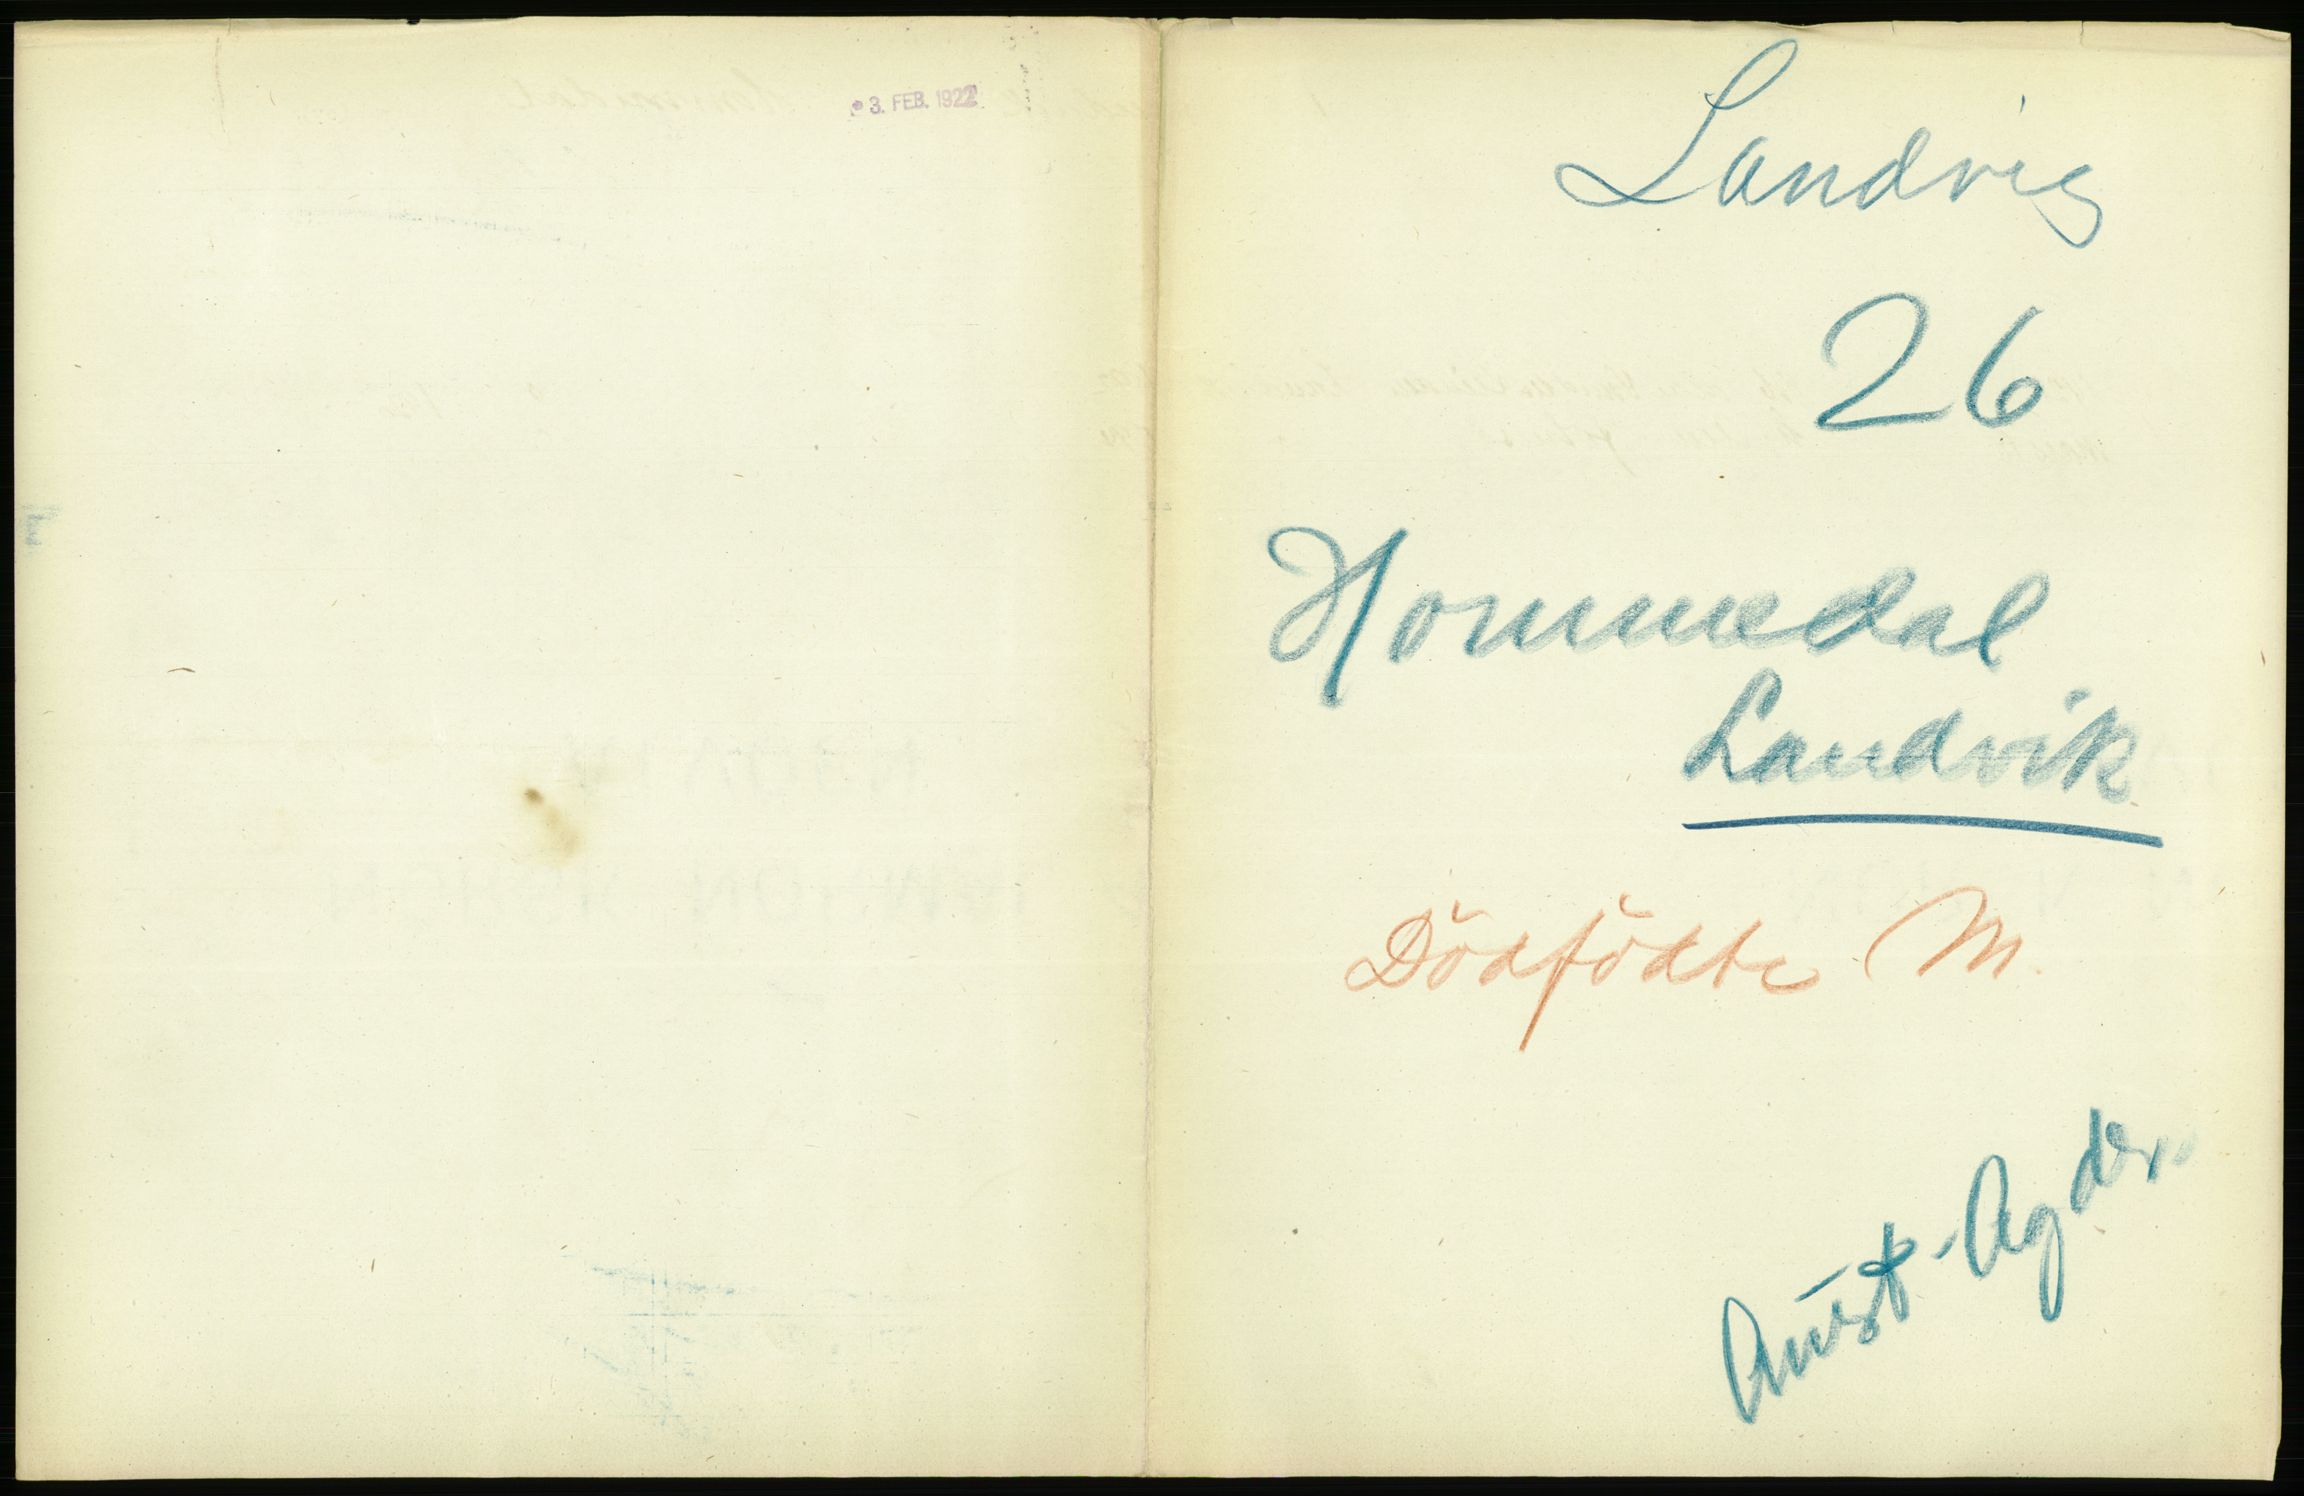 3. FEB. 1922
Landvig
26
Hommedal
Landvik
Dödfödte M.
Aust-Agder